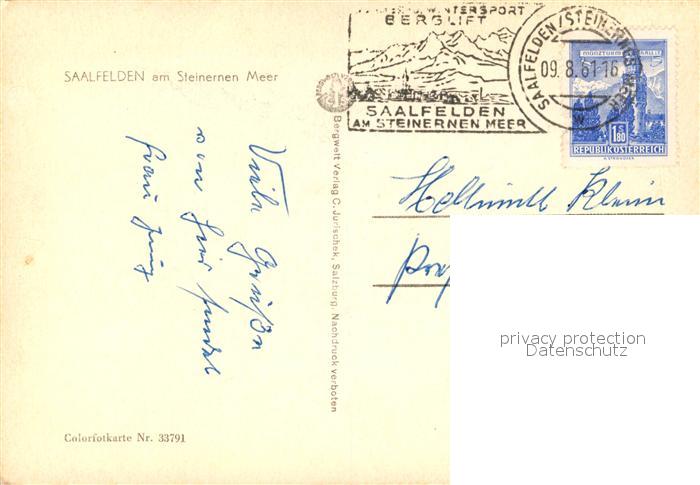 SAALFELDEN am Steinernen Meer
WINTERSPORT
BERGLIFT
SAALFELDEN
AM STEINERNEN MEER
SAALFELDEN/STEINERNES MEER
09.8.61-16
MÜNZTURM HALL
1.80
S
REPUBLIK ÖSTERREICH
Bergwelt Verlag C. Jurischek, Salzburg, Nachdruck verboten
Viele Grüße
von hier sendet
Frau
Hellmuth Klein
privacy protection
Datenschutz
Colorfotkarte Nr. 33791